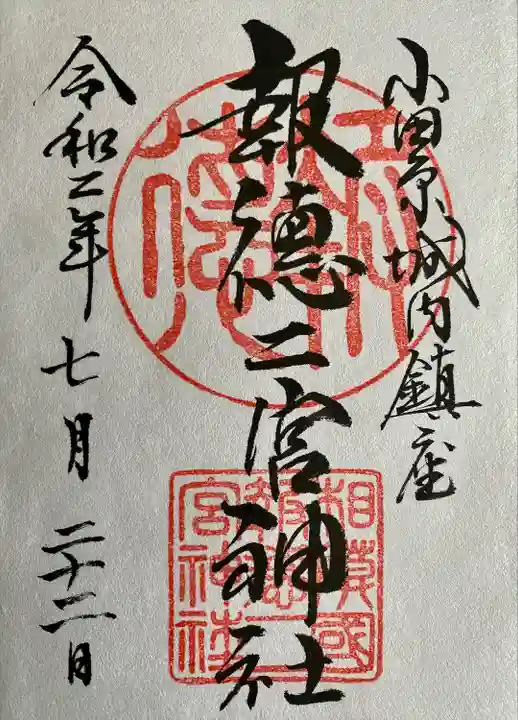 小田原城内鎮座
報徳二宮神社
令和二年七月二十二日
相模國
報徳二
宮神社